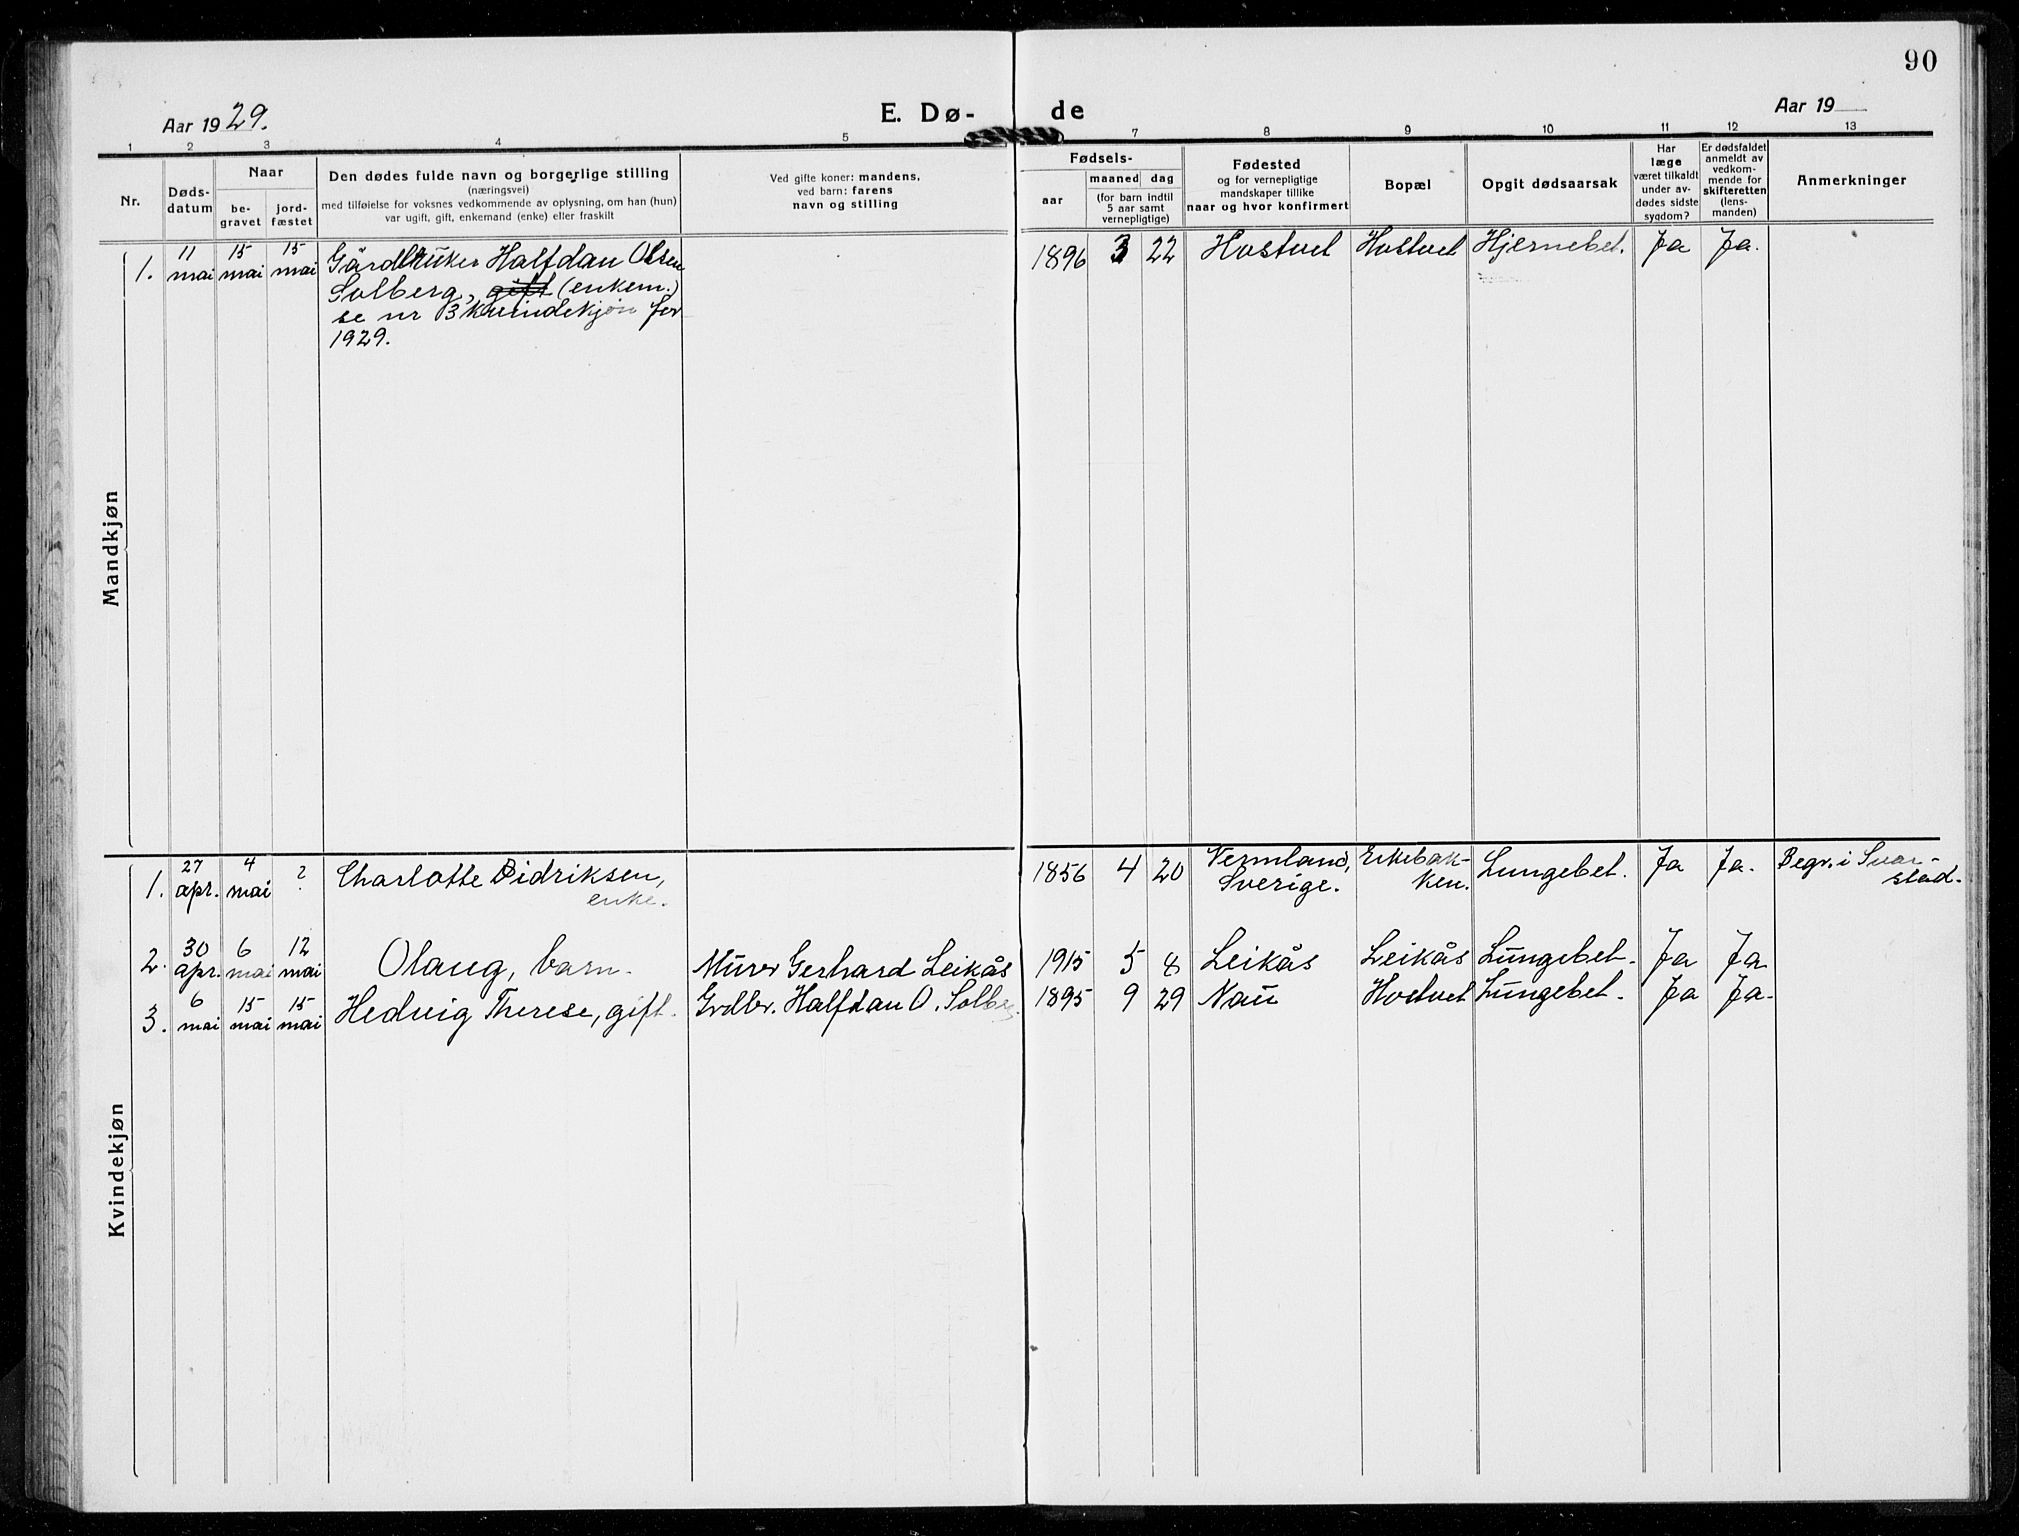 90
Aar 1929.
E. Dø-
de
Aar 19
1 2 3 4 5 7 8 9 10 11 12 13
Nr.
Døds-
datum
Naar
be-
gravet
jord-
fæstet
Den dødes fulde navn og borgerlige stilling
(næringsvei)
med tilføielse for voksnes vedkommende av oplysning, om han (hun)
var ugift, gift, enkemand (enke) eller fraskilt
Ved gifte koner: mandens,
ved barn: farens
navn og stilling
Fødsels-
aar
maaned dag
(for barn indtil
5 aar samt
vernepligtige)
Fødested
og for vernepligtige
mandskaper tillike
naar og hvor konfirmert
Bopæl
Opgit dødsaarsak
Har
læge
været tilkaldt
under av-
dødes sidste
sygdom?
Er dødsfaldet
anmeldt av
vedkom-
mende for
skifteretten
(lens-
manden)
Anmerkninger
Mandkjøn
1. 11 mai 15 mai 15 mai Gårdbruker Halfdan Olsen 1896 3 22 Hostvet Hostvet Hjernebet. Ja Ja.
Solberg, gift (enkem.)
se nr 3 kvindekjøn for
1929.
Kvindekjøn
1. 27 apr. 4 mai ? Charlotte Didriksen, 1856 4 20 Vermland, Erkebak- Lungebet. Ja Ja. Begr. i Svar-
enke. Sverige. ken. stad.
2. 30 apr. 6 mai 12 mai Olaug, barn. Murer Gerhard Leikås 1915 5 8 Leikås Leikås Lungebet. Ja Ja
3. 6 mai 15 mai 15 mai Hedvig Therese, gift. Grdbr. Halfdan O. Solberg. 1895 9 29 Nau Hostvet Lungebet. Ja Ja.